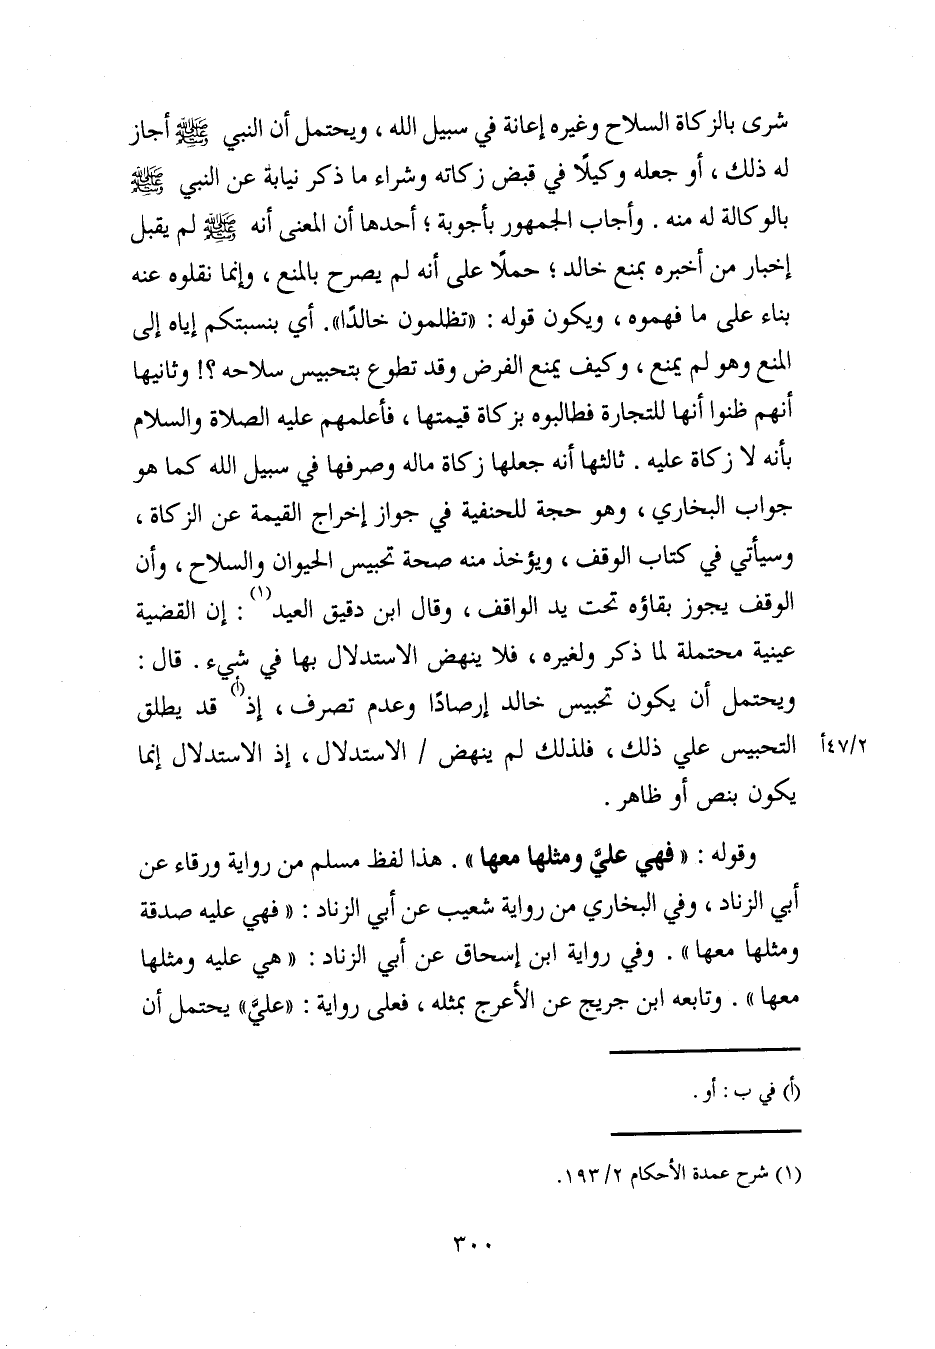 شرى بالزكاة السلاح وغيره إعانة في سبيل الله ، ويحتمل أن النبي ﷺ أجاز
له ذلك ، أو جعله وكيلًا في قبض زكاته وشراء ما ذكر نيابة عن النبي ﷺ
بالوكالة له منه . وأجاب الجمهور بأجوبة ؛ أحدها أن المعنى أنه ﷺ لم يقبل
إخبار من أخبره بمنع خالد ؛ حملًا على أنه لم يصرح بالمنع ، وإنما نقلوه عنه
بناء على ما فهموه ، ويكون قوله : «تظلمون خالدًا». أي بنسبتكم إياه إلى
المنع وهو لم يمنع ، وكيف يمنع الفرض وقد تطوع بتحبيس سلاحه ؟! وثانيها
أنهم ظنوا أنها للتجارة فطالبوه بزكاة قيمتها ، فأعلمهم عليه الصلاة والسلام
بأنه لا زكاة عليه . ثالثها أنه جعلها زكاة ماله وصرفها في سبيل الله كما هو
جواب البخاري ، وهو حجة للحنفية في جواز إخراج القيمة عن الزكاة ،
وسيأتي في كتاب الوقف ، ويؤخذ منه صحة تحبيس الحيوان والسلاح ، وأن
الوقف يجوز بقاؤه تحت يد الواقف ، وقال ابن دقيق العيد(١) : إن القضية
عينية محتملة لما ذكر ولغيره ، فلا ينهض الاستدلال بها في شيء . قال :
ويحتمل أن يكون تحبيس خالد إرصادًا وعدم تصرف ، إذ(أ) قد يطلق
التحبيس علي ذلك ، فلذلك لم ينهض / الاستدلال ، إذ الاستدلال إنما ٤٧/٢أ
يكون بنص أو ظاهر .
وقوله : « فهي عليَّ ومثلها معها » . هذا لفظ مسلم من رواية ورقاء عن
أبي الزناد ، وفي البخاري من رواية شعيب عن أبي الزناد : « فهي عليه صدقة
ومثلها معها» . وفي رواية ابن إسحاق عن أبي الزناد : « هي عليه ومثلها
معها» . وتابعه ابن جريج عن الأعرج بمثله ، فعلى رواية : «عليَّ» يحتمل أن
(أ) في ب : أو .
(١) شرح عمدة الأحكام ١٩٣/٢.
٣٠٠